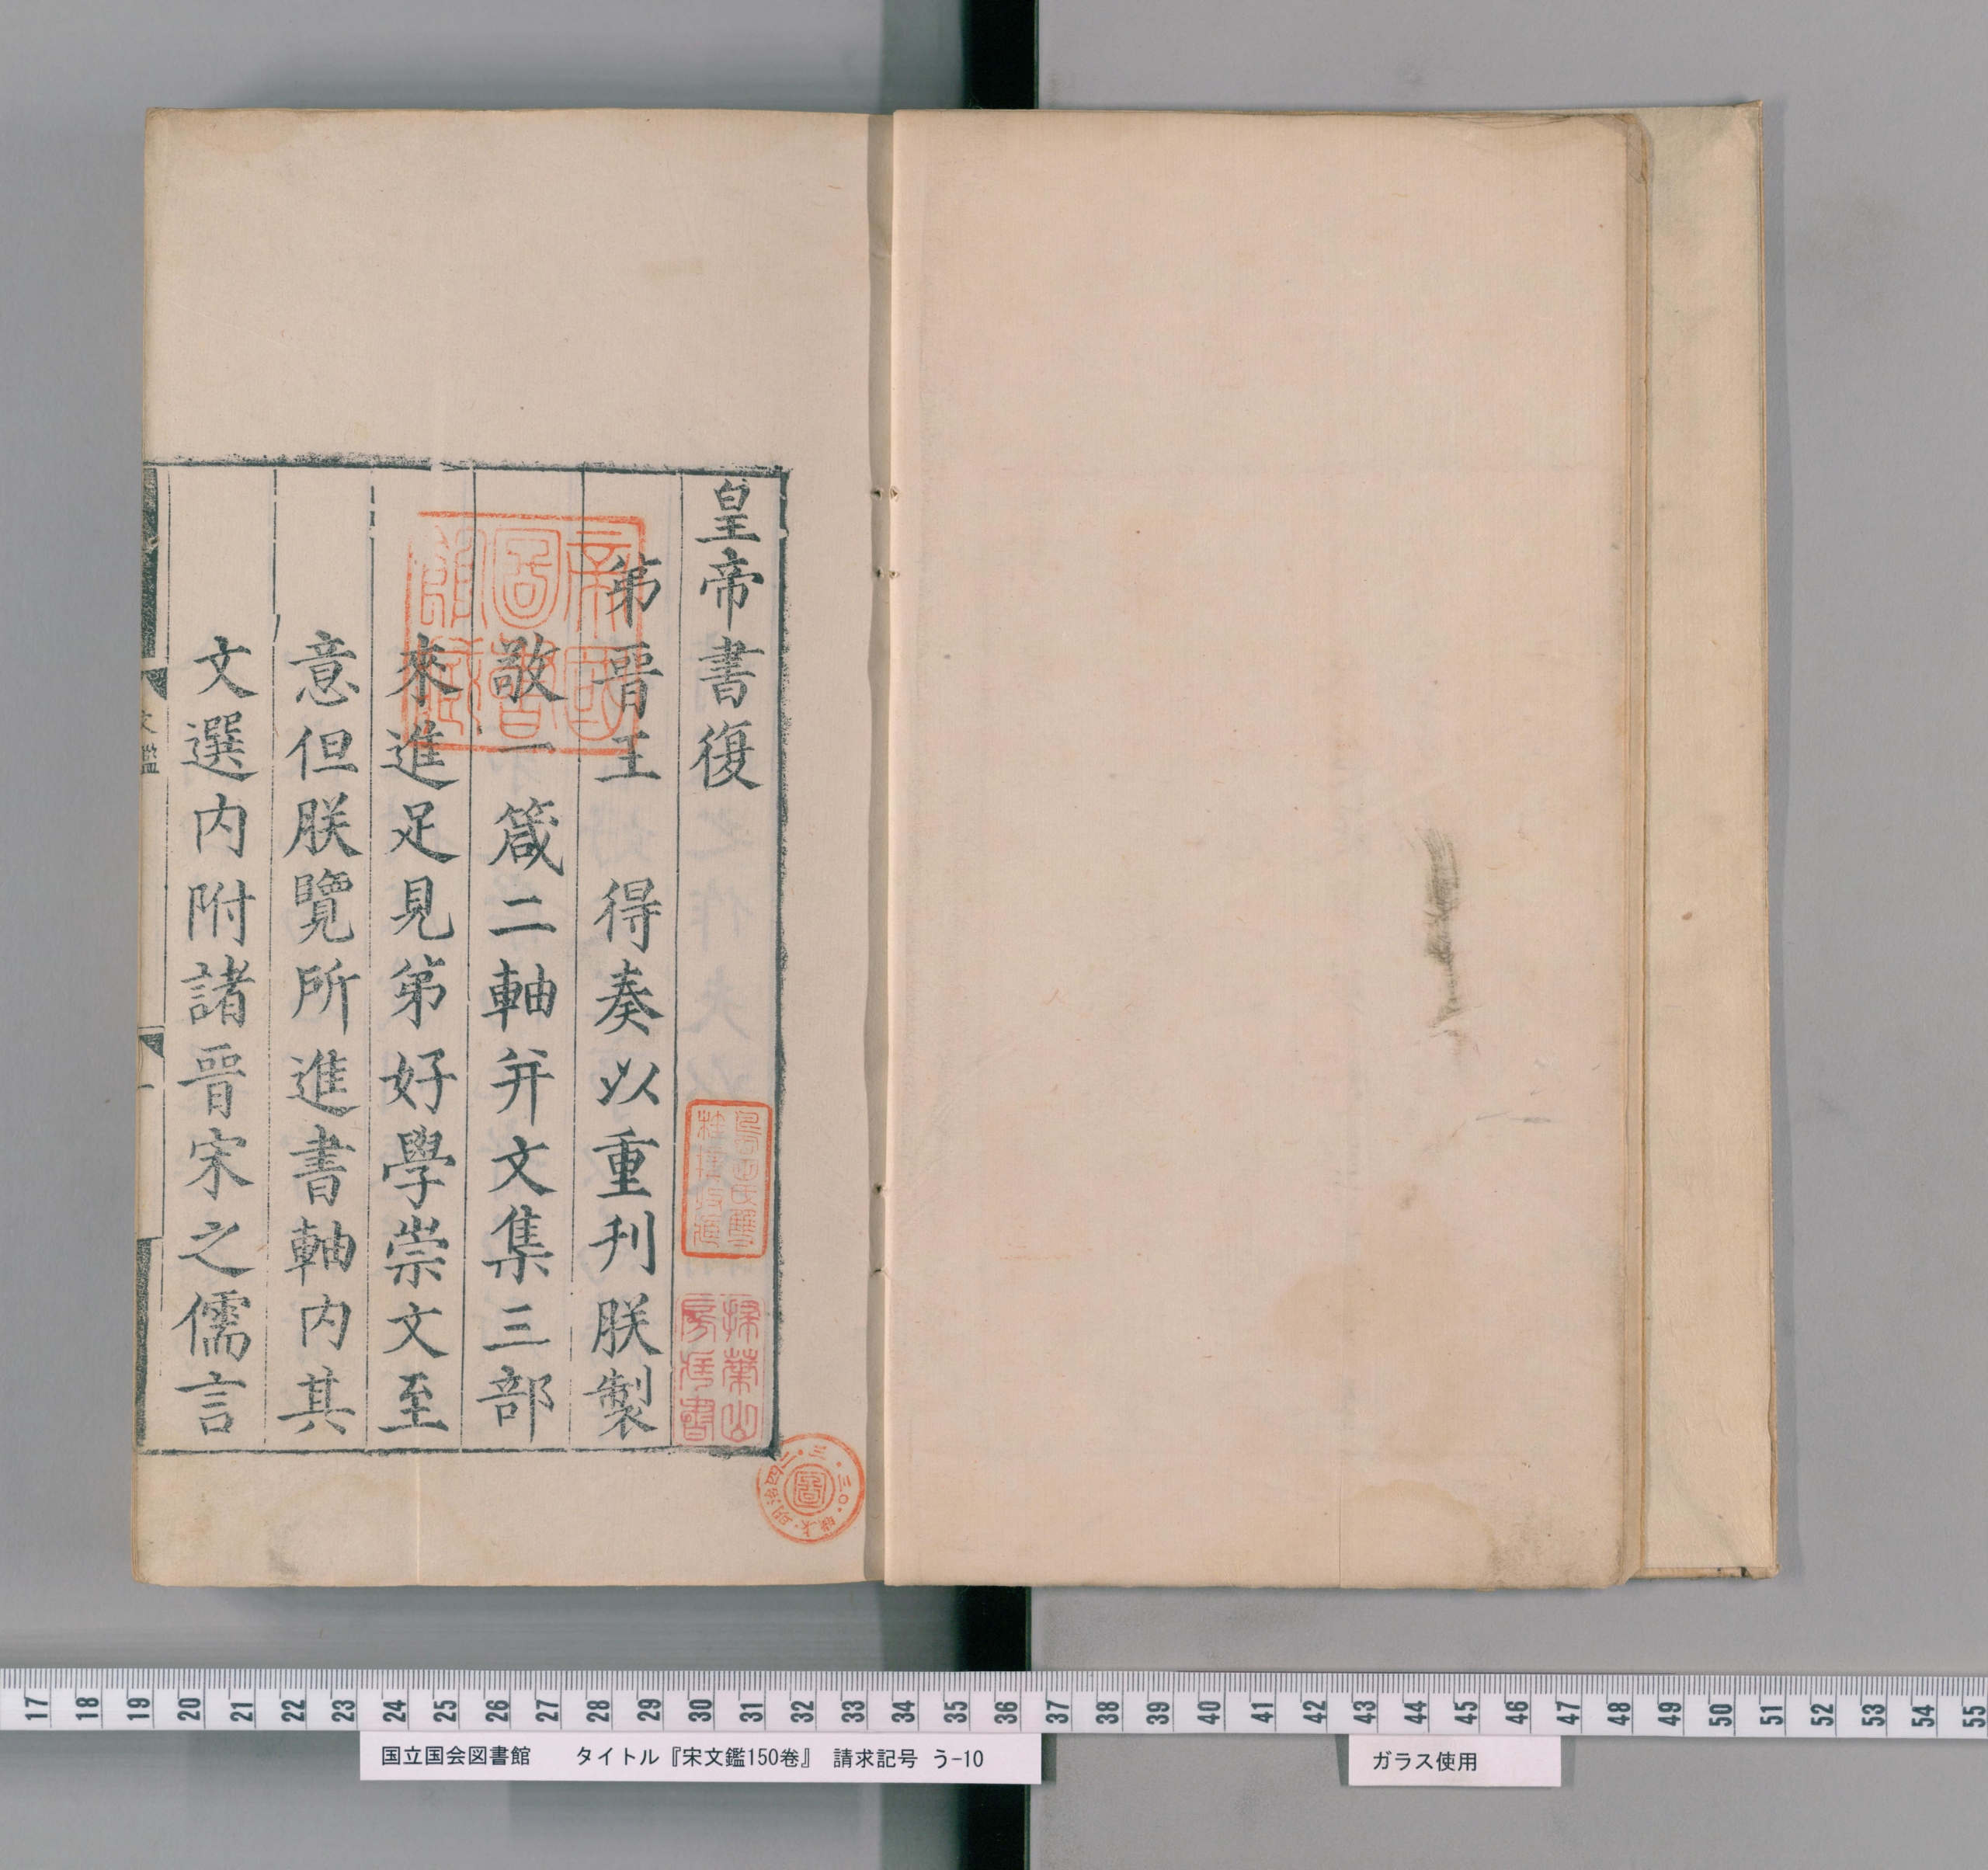 皇帝書復
弟晉王　得奏以重刋朕製
敬一　箴二軸幷文集三部
來進足見弟好學崇文至
意但朕覽所進書軸内其
文選内附諸晉宋之儒言
文鑑
一
帝國圖書館藏
掃葉山房珍書
圖
明治四二・三・三〇・購求
17 18 19 20 21 22 23 24 25 26 27 28 29 30 31 32 33 34 35 36 37 38 39 40 41 42 43 44 45 46 47 48 49 50 51 52 53 54 55
国立国会図書館　タイトル『宋文鑑150巻』　請求記号　う-10
ガラス使用